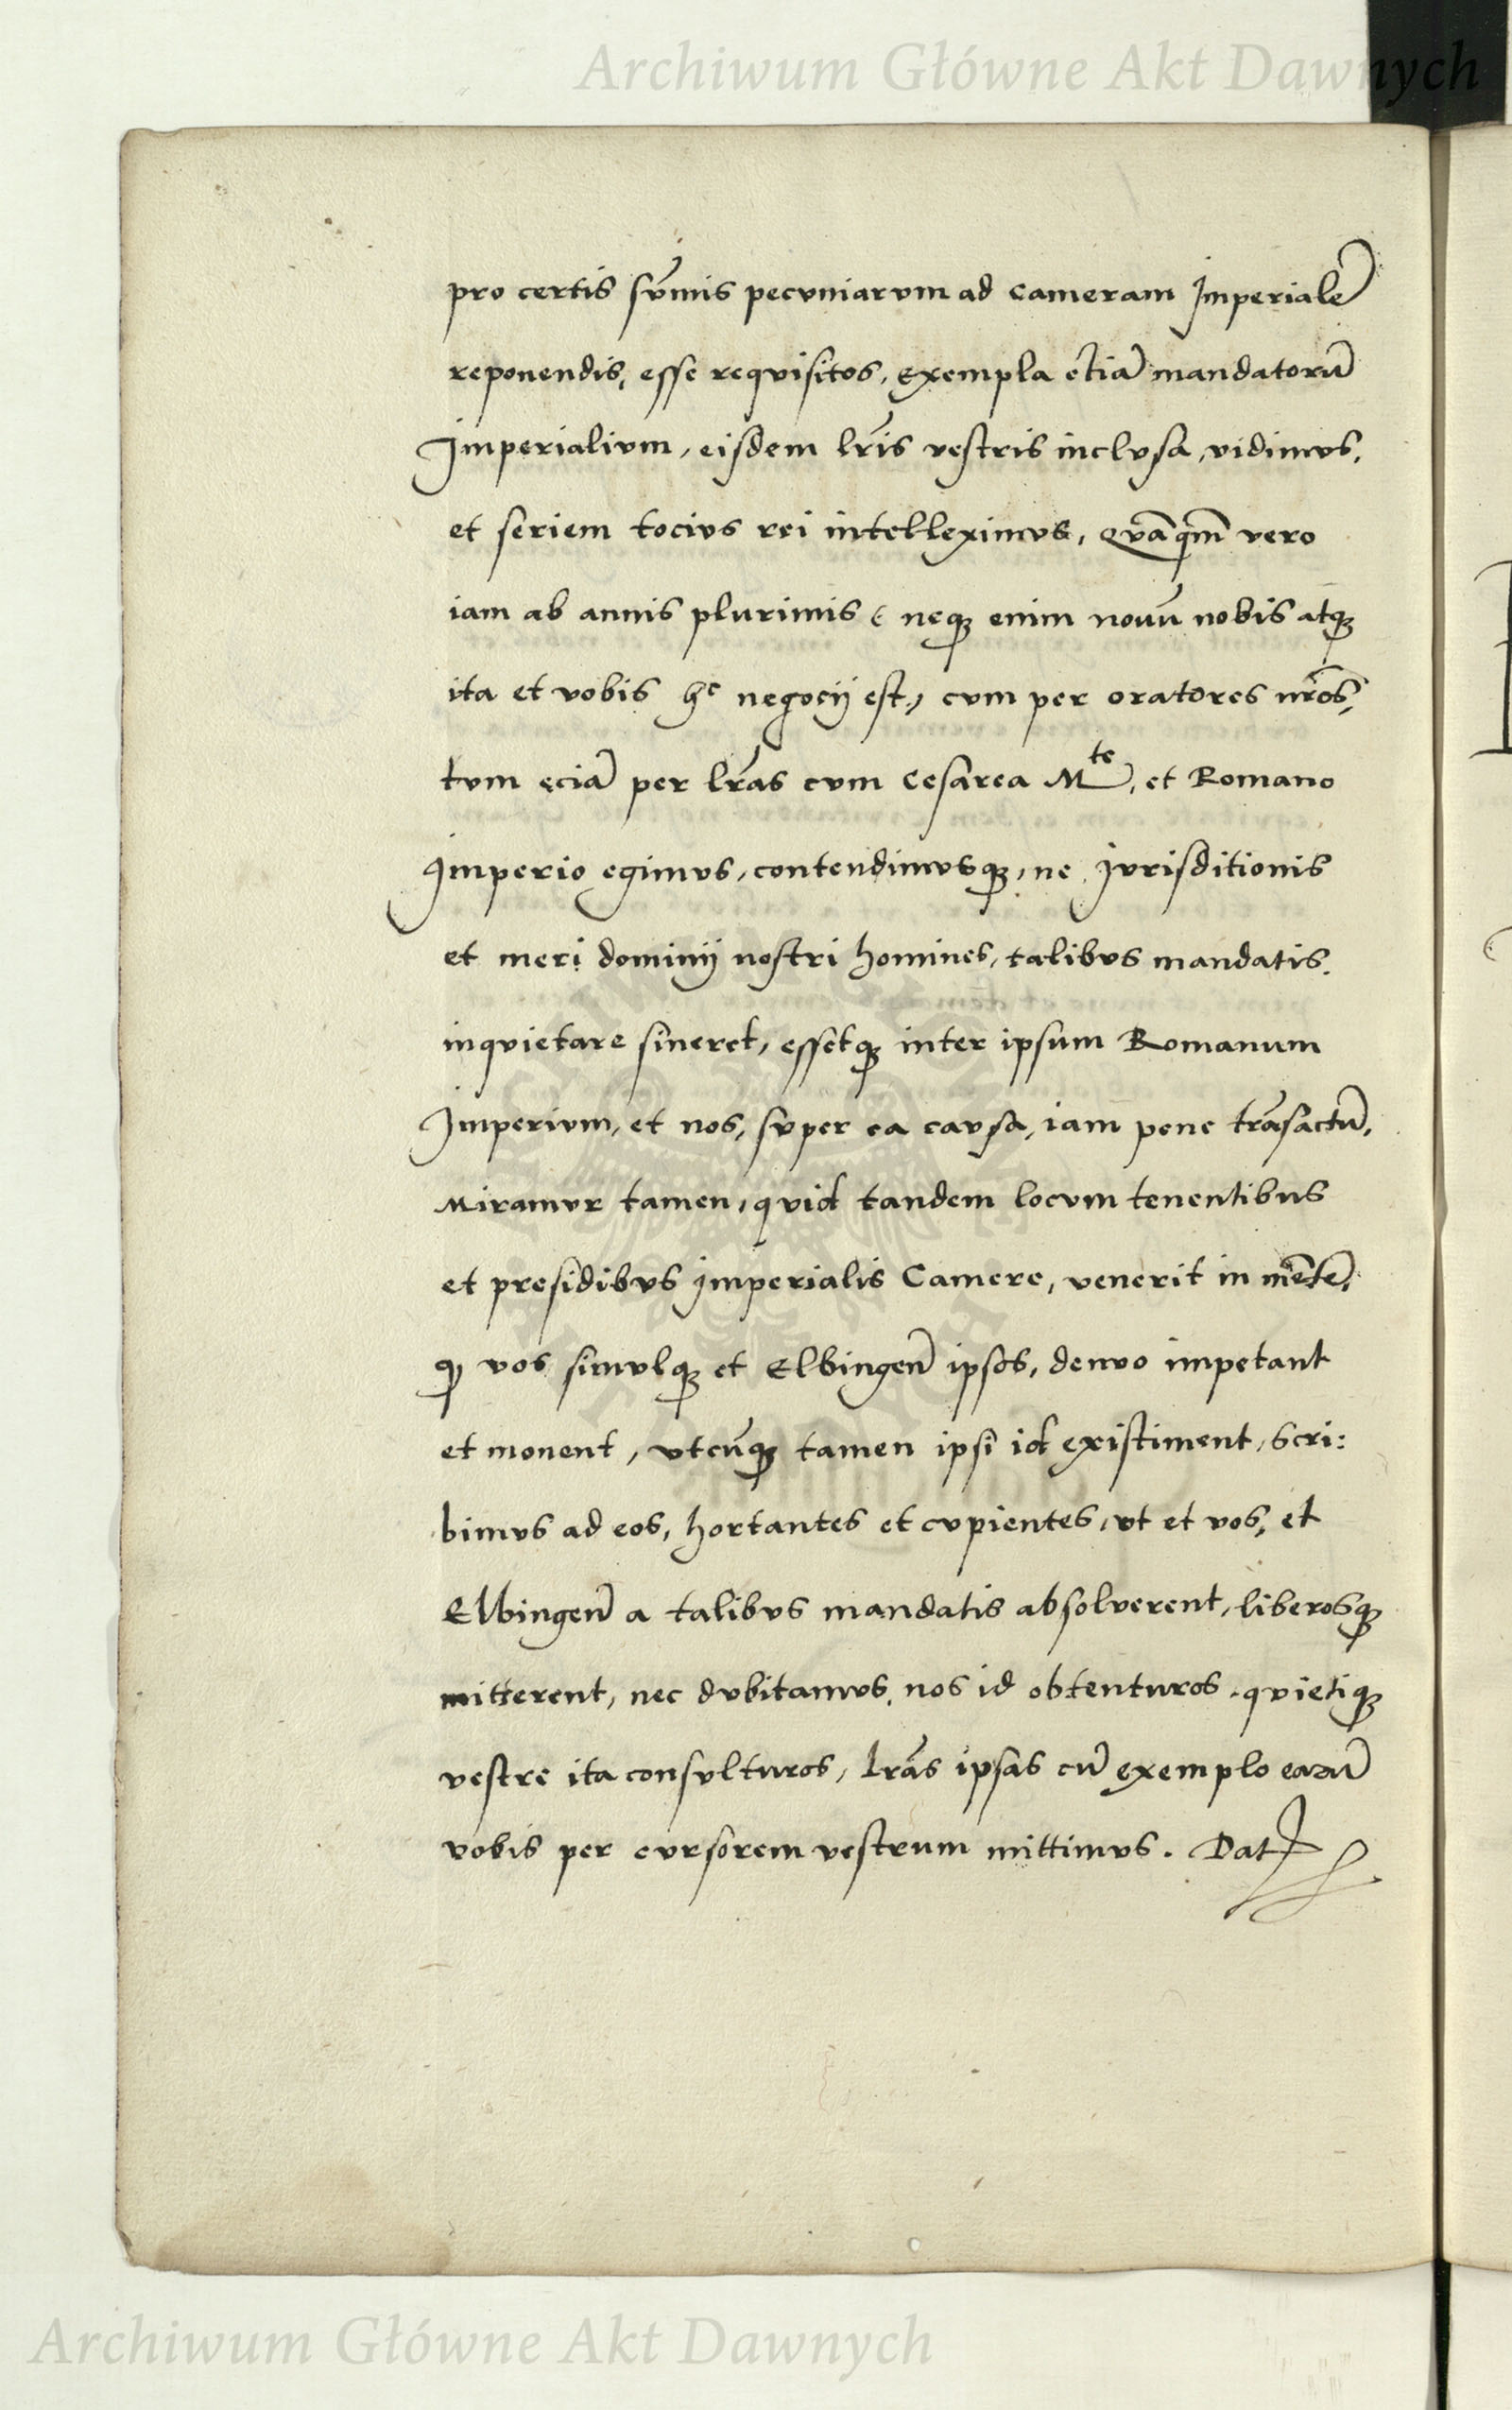 Archiwum Główne Akt Dawnych
pro certis sv̄mis pecvniarvm ad cameram Imperialē
reponendis, esse reqvisitos, exempla etiā mandatorū
Imperialivm, eisdem lr̄is vestris inclvsa, vidimvs,
et seriem tocivs rei intelleximvs, Qvāqm̄ vero
iam ab annis plvrimis ( neqꝫ enim nouū nobis atqꝫ
ita et vobis hͨ negocij est,) cvm per oratores nr̄os,
tvm ęciā per lr̄as cvm Cesarea Mᵗᵉ, et Romano
Imperio egimvs, contendimvsqꝫ, ne Ivrisditionis
et meri dominij nostri homines, talibvs mandatis
inqvietare sineret, essetqꝫ inter ipsum Romanum
Imperivm, et nos, svper ea cavsa, iam pene trāsactū,
Miramvr tamen, qvid tandem locvm tenentibus
et presidibvs Imperialis Camere, venerit in mētē,
ꝙ vos simvlqꝫ et Elbingeñ ipsos, denvo impetant
et monent, vtcūqꝫ tamen ipsi id existiment, Scri:
bimvs ad eos, hortantes et cvpientes, vt et vos, et
Elbingeñ a talibvs mandatis absolverent, liberosqꝫ
mitterent, nec dvbitamvs, nos id obtenturos, qvietiqꝫ
vestre ita consvlturos, lr̄as ipsas cū exemplo earū
vobis per cvrsorem vestrum mittimvs. Dat
Archiwum Główne Akt Dawnych